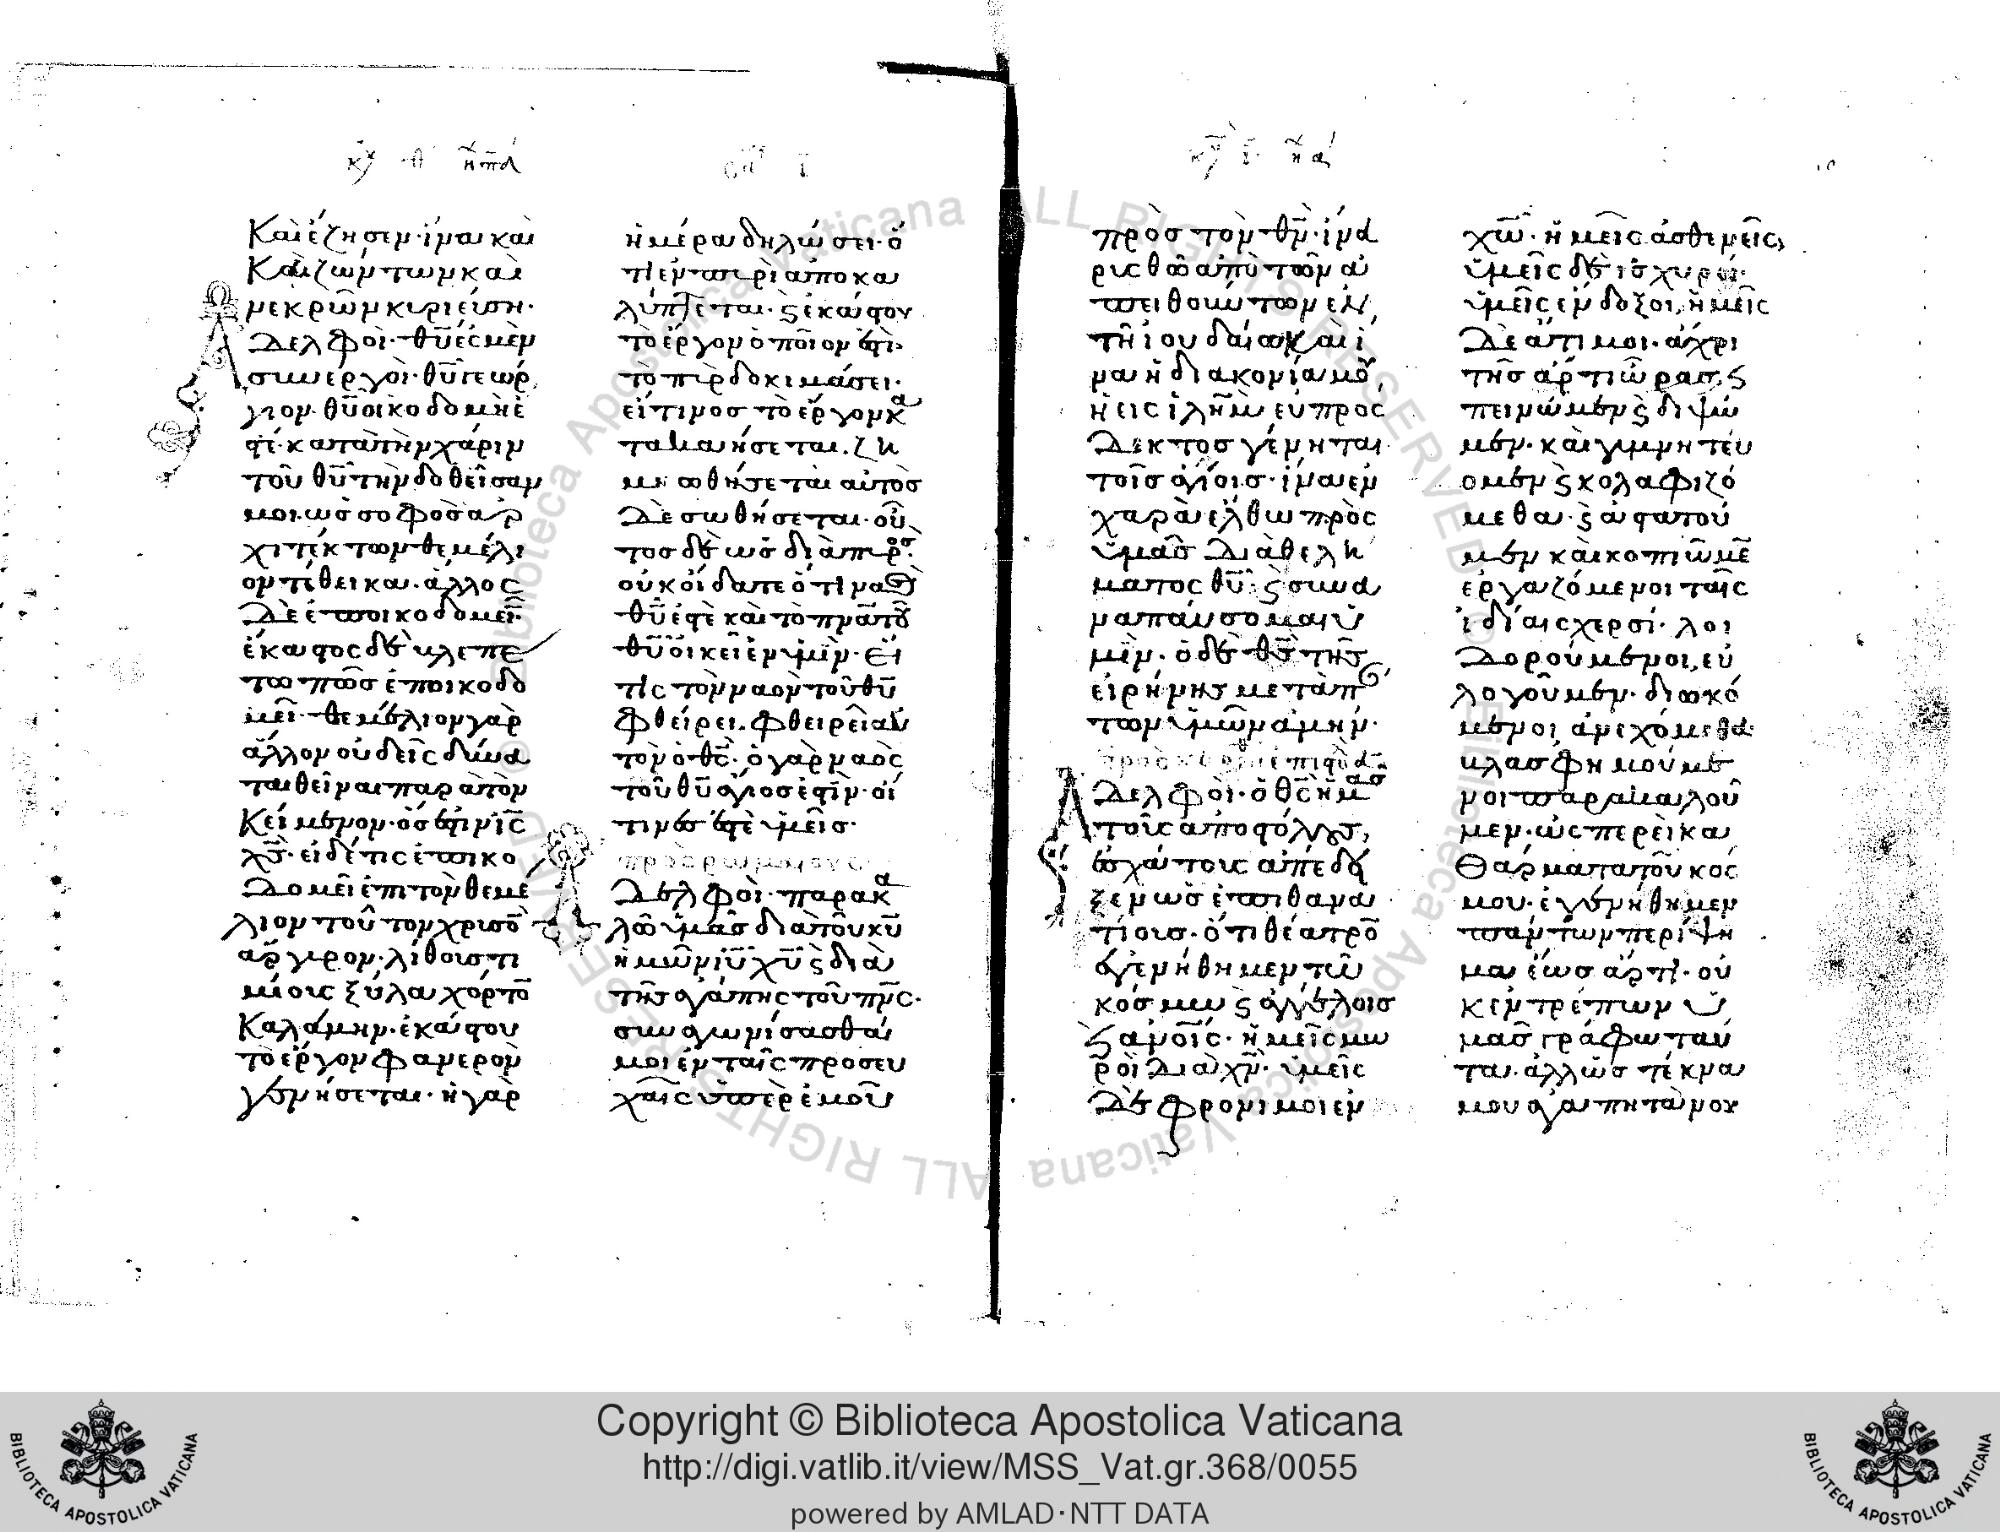 κυ θ
Καὶ ἔζησεν· ἵνα καὶ
Καὶ ζώντων καὶ
νεκρῶν κυριεύση·
Ἀδελφοὶ· θῦ ἐσμὲν
συνεργοὶ· θῦ γεώρ
γιον· θῦ οἰκοδομὴ ἐ
στέ· κατὰ τὴν χάριν
τοῦ θῦ τὴν δοθεῖσαν
μοι. ὡς σοφὸς ἀρ
χιτέκτων θεμέλι
ον τέθεικα. ἄλλος
Δὲ ἐποικοδομεῖ·
ἕκαστος δὲ βλεπε
τω πῶς ἐποικοδο
μεῖ· θεμέλιον γὰρ
ἄλλον οὐδεὶς δύνα
ται θεῖναι παρὰ τὸν
Κείμενον· ὅς ἐστιν ις
χς· εἰ δέ τις ἐποικο
Δομεῖ ἐπι τὸν θεμέ
λιον τοῦτον χρυσο
ἄργυρον· λίθους τι
μίους ξύλα χόρτο
Καλάμην· ἑκάστου
τὸ ἔργον φανερὸν
γενήσεται· ἡ γὰρ
ἡμέρα δηλώσει· ὅ
τι ἐν πυρὶ ἀποκα
λύπτεται· ϗ ἑκάστου
τὸ ἔργον ὁποῖον ἐστι·
τὸ πῦρ δοκιμάσει·
εἴ τινος τὸ ἔργον κα
τακαήσεται. ζη
μιωθήσεται αὐτὸς
Δὲ σωθήσεται· οὕ
τος δὲ ὡς διὰ πυρός·
οὐκ οἴδατε ὅτι ναὸς
θῦ ἐστὲ καὶ τὸ πνα τοῦ
θῦ οἰκεῖ ἐν ὑμῖν· Εἴ
τις τὸν ναὸν τοῦ θῦ
φθείρει. φθειρεῖ αὐ
τὸν ὁ θς· ὁ γὰρ ναὸς
τοῦ θῦ ἅγιος ἐστὶν· οἵ
τινες ἐστὲ ὑμεῖς·
πρὸς ρωμαίους
Ἀδελφοὶ· παρακα
λῶ ὑμᾶς διὰ τοῦ κῦ
ἡμῶν ιῦ χῦ ϗ διὰ
τῆς ἀγάπης τοῦ πνς·
συναγωνίσασθαί
μοι ἐν ταῖς προσευ
χαῖς ὑπὲρ ἐμοῦ
πρὸς τὸν θν· ἵνα
ρυσθῶ ἀπὸ τῶν ἀ
πειθούντων ἐν
τῆ ἰουδαία Καὶ ἵ
να ἡ διακονία μου
ἡ εἰς ἱλημ εὐπρος
Δεκτος γένηται
τοῖς ἁγίοις· ἵνα ἐν
χαρᾶ ἔλθω πρὸς
ὑμᾶς Διὰ θελή
ματος θῦ· ϗ συνα
ναπαύσομαι ὑ
μῖν· ὁ δὲ θς τῆς
εἰρήνης μετὰ π
των ὑμῶν ἀμήν·
Ἀδελφοὶ· ὁ θς ἡμας
τοὺς ἀποστόλους,
ἐσχάτους ἀπέδει
ξεν ὡς ἐπιθανα
τίους· ὅτι θέατρο
ἐγενήθημεν τῶ
κόσμω ϗ ἀγγέλοις
ϗ ἀνοις· ἡμεῖς μω
ροὶ Διὰ χν· ὑμεῖς
Δὲ φρονιμοι ἐν
χω· ἡμεῖς ἀσθενεῖς,
ὑμεῖς δὲ ἰσχυροί·
ὑμεῖς ἔνδοξοι, ἡμεῖς
Δὲ ἄτιμοι· ἄχρι
τῆς ἄρτι ὥρας ϗ
πεινῶμεν ϗ διψῶ
μεν· καὶ γυμνητεύ
ομεν ϗ κολαφιζό
μεθα· ϗ ἀστατοῦ
μεν καὶ κοπιῶμε
ἐργαζόμενοι ταῖς
ἰδίαις χερσί· λοι
Δορούμενοι, εὐ
λογοῦμεν· διωκό
μενοι ἀνεχόμεθα·
βλασφημούμε
νοι παρακαλοῦ
μεν· ὡς περὲι κα
Θάρματα τοῦ κόσ
μου· ἐγενήθημεν
πάντων περίψη
μα ἕως ἄρτι· οὐ
κ ἐντρέπων ὑ
μᾶς γράφω ταῦ
τα· ἀλλ' ὡς τέκνα
μου ἀγαπητὰ νου
Copyright © Biblioteca Apostolica Vaticana
http://digi.vatlib.it/view/MSS_Vat.gr.368/0055
powered by AMLAD·NTT DATA
BIBLIOTECA APOSTOLICA VATICANA
BIBLIOTECA APOSTOLICA VATICANA